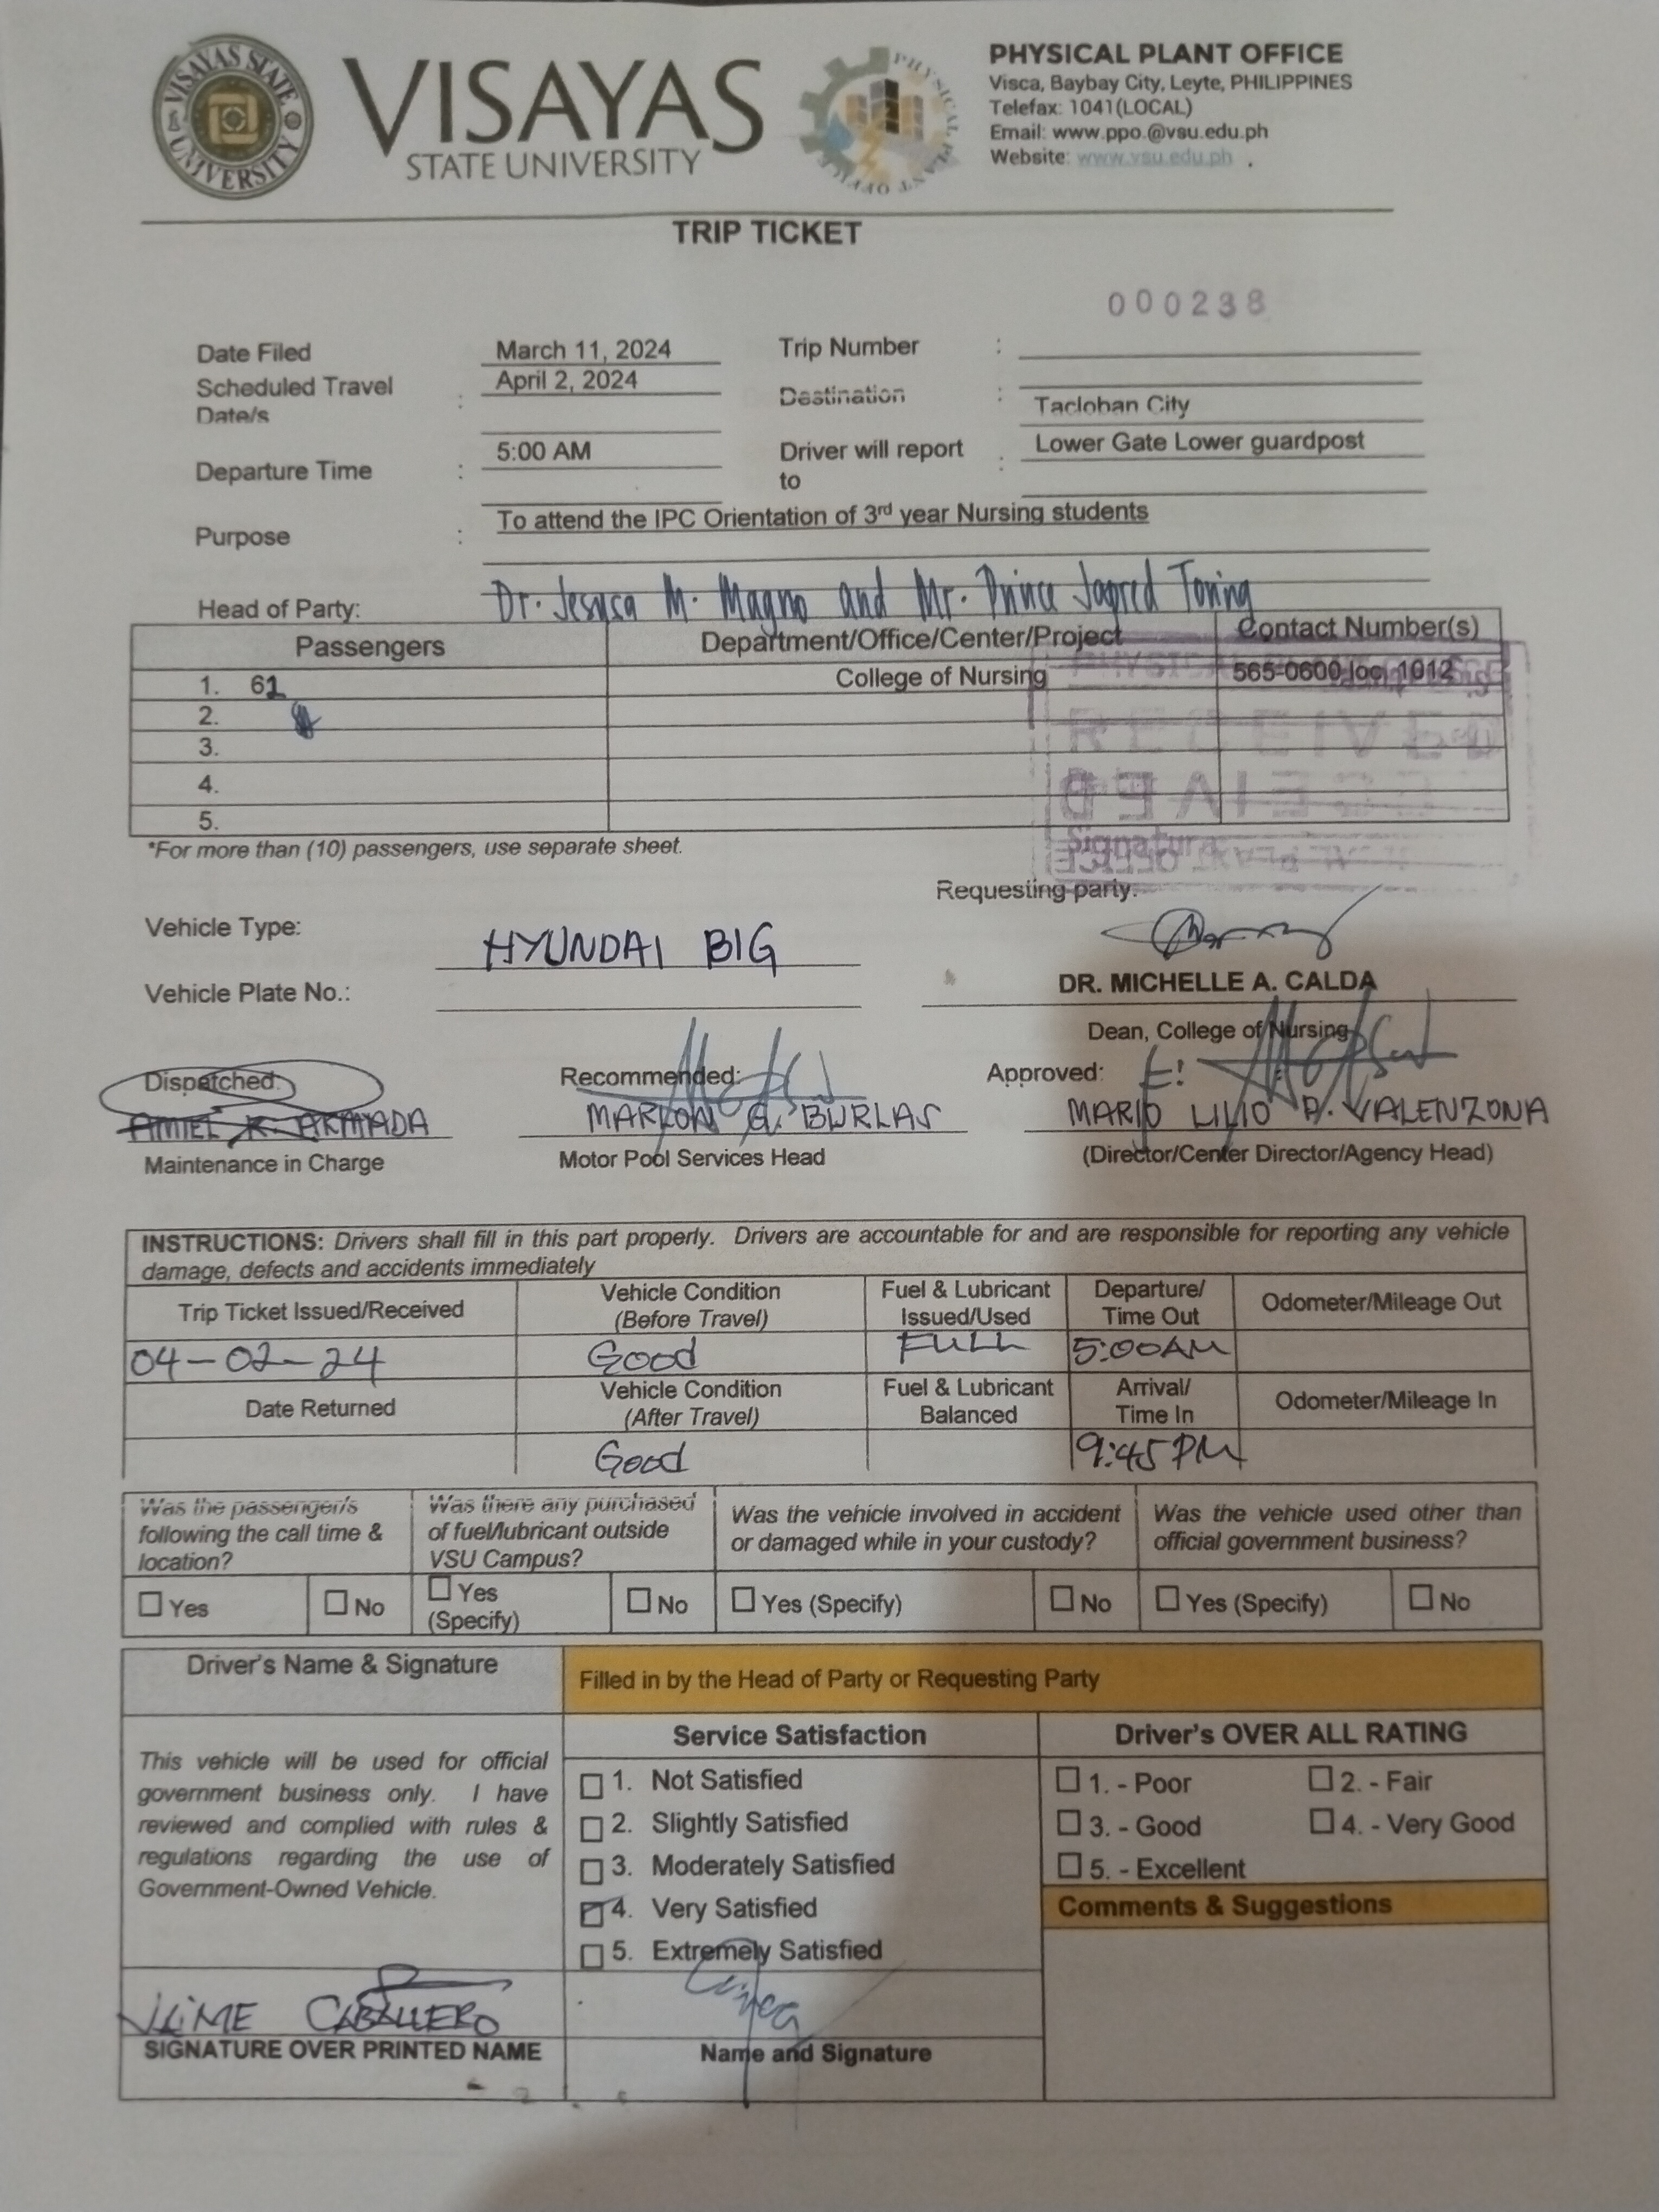 VISAYAS STATE UNIVERSITY
VISAYAS
STATE UNIVERSITY
PHYSICAL PLANT OFFICE
PHYSICAL PLANT OFFICE
Visca, Baybay City, Leyte, PHILIPPINES
Telefax: 1041(LOCAL)
Email: www.ppo.@vsu.edu.ph
Website: www.vsu.edu.ph .
TRIP TICKET
000238
Date Filed March 11, 2024 Trip Number :
Scheduled Travel Date/s : April 2, 2024 Destination : Tacloban City
Departure Time : 5:00 AM Driver will report to : Lower Gate Lower guardpost
Purpose : To attend the IPC Orientation of 3rd year Nursing students
Head of Party: Dr. Jesusa M. Magno and Mr. Prince Jagred Toring
Passengers Department/Office/Center/Project Contact Number(s)
1. 61 College of Nursing 565-0600 loc. 1012
2.
3.
4.
5.
RECEIVED
Signature
*For more than (10) passengers, use separate sheet.
Requesting party:
Vehicle Type: HYUNDAI BIG
DR. MICHELLE A. CALDA
Vehicle Plate No.:
Dean, College of Nursing
Dispatched: Recommended: Approved:
AMIEL K. ARMADA MARLON G. BURLAS MARIO LILIO P. VALENZONA
Maintenance in Charge Motor Pool Services Head (Director/Center Director/Agency Head)
INSTRUCTIONS: Drivers shall fill in this part properly. Drivers are accountable for and are responsible for reporting any vehicle
damage, defects and accidents immediately
Trip Ticket Issued/Received Vehicle Condition (Before Travel) Fuel & Lubricant Issued/Used Departure/ Time Out Odometer/Mileage Out
04-02-24 Good FULL 5:00AM
Date Returned Vehicle Condition (After Travel) Fuel & Lubricant Balanced Arrival/ Time In Odometer/Mileage In
Good 9:45 PM
Was the passenger/s following the call time & location? Was there any purchased of fuel/lubricant outside VSU Campus? Was the vehicle involved in accident or damaged while in your custody? Was the vehicle used other than official government business?
Yes No Yes (Specify) No Yes (Specify) No Yes (Specify) No
Driver's Name & Signature Filled in by the Head of Party or Requesting Party
Service Satisfaction Driver's OVER ALL RATING
This vehicle will be used for official
government business only. I have
reviewed and complied with rules &
regulations regarding the use of
Government-Owned Vehicle.
1. Not Satisfied
2. Slightly Satisfied
3. Moderately Satisfied
4. Very Satisfied
5. Extremely Satisfied
1. - Poor 2. - Fair
3. - Good 4. - Very Good
5. - Excellent
Comments & Suggestions
JAIME CABALLERO
SIGNATURE OVER PRINTED NAME Name and Signature